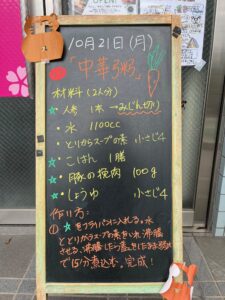 10月21日(月)
「中華粥」
材料(2人分)
★・人参 1本→みじん切り
・水 1100cc
・とりがらスープの素 小さじ4
★・ごはん 1膳
★・豚の挽肉 100g
★・しょうゆ 小さじ4
作り方:
① ★をフライパンに入れる。水
ととりがらスープの素を入れ沸騰
させる。沸騰したら蓋をしたまま弱火
で15分煮込む。完成!
OPEN